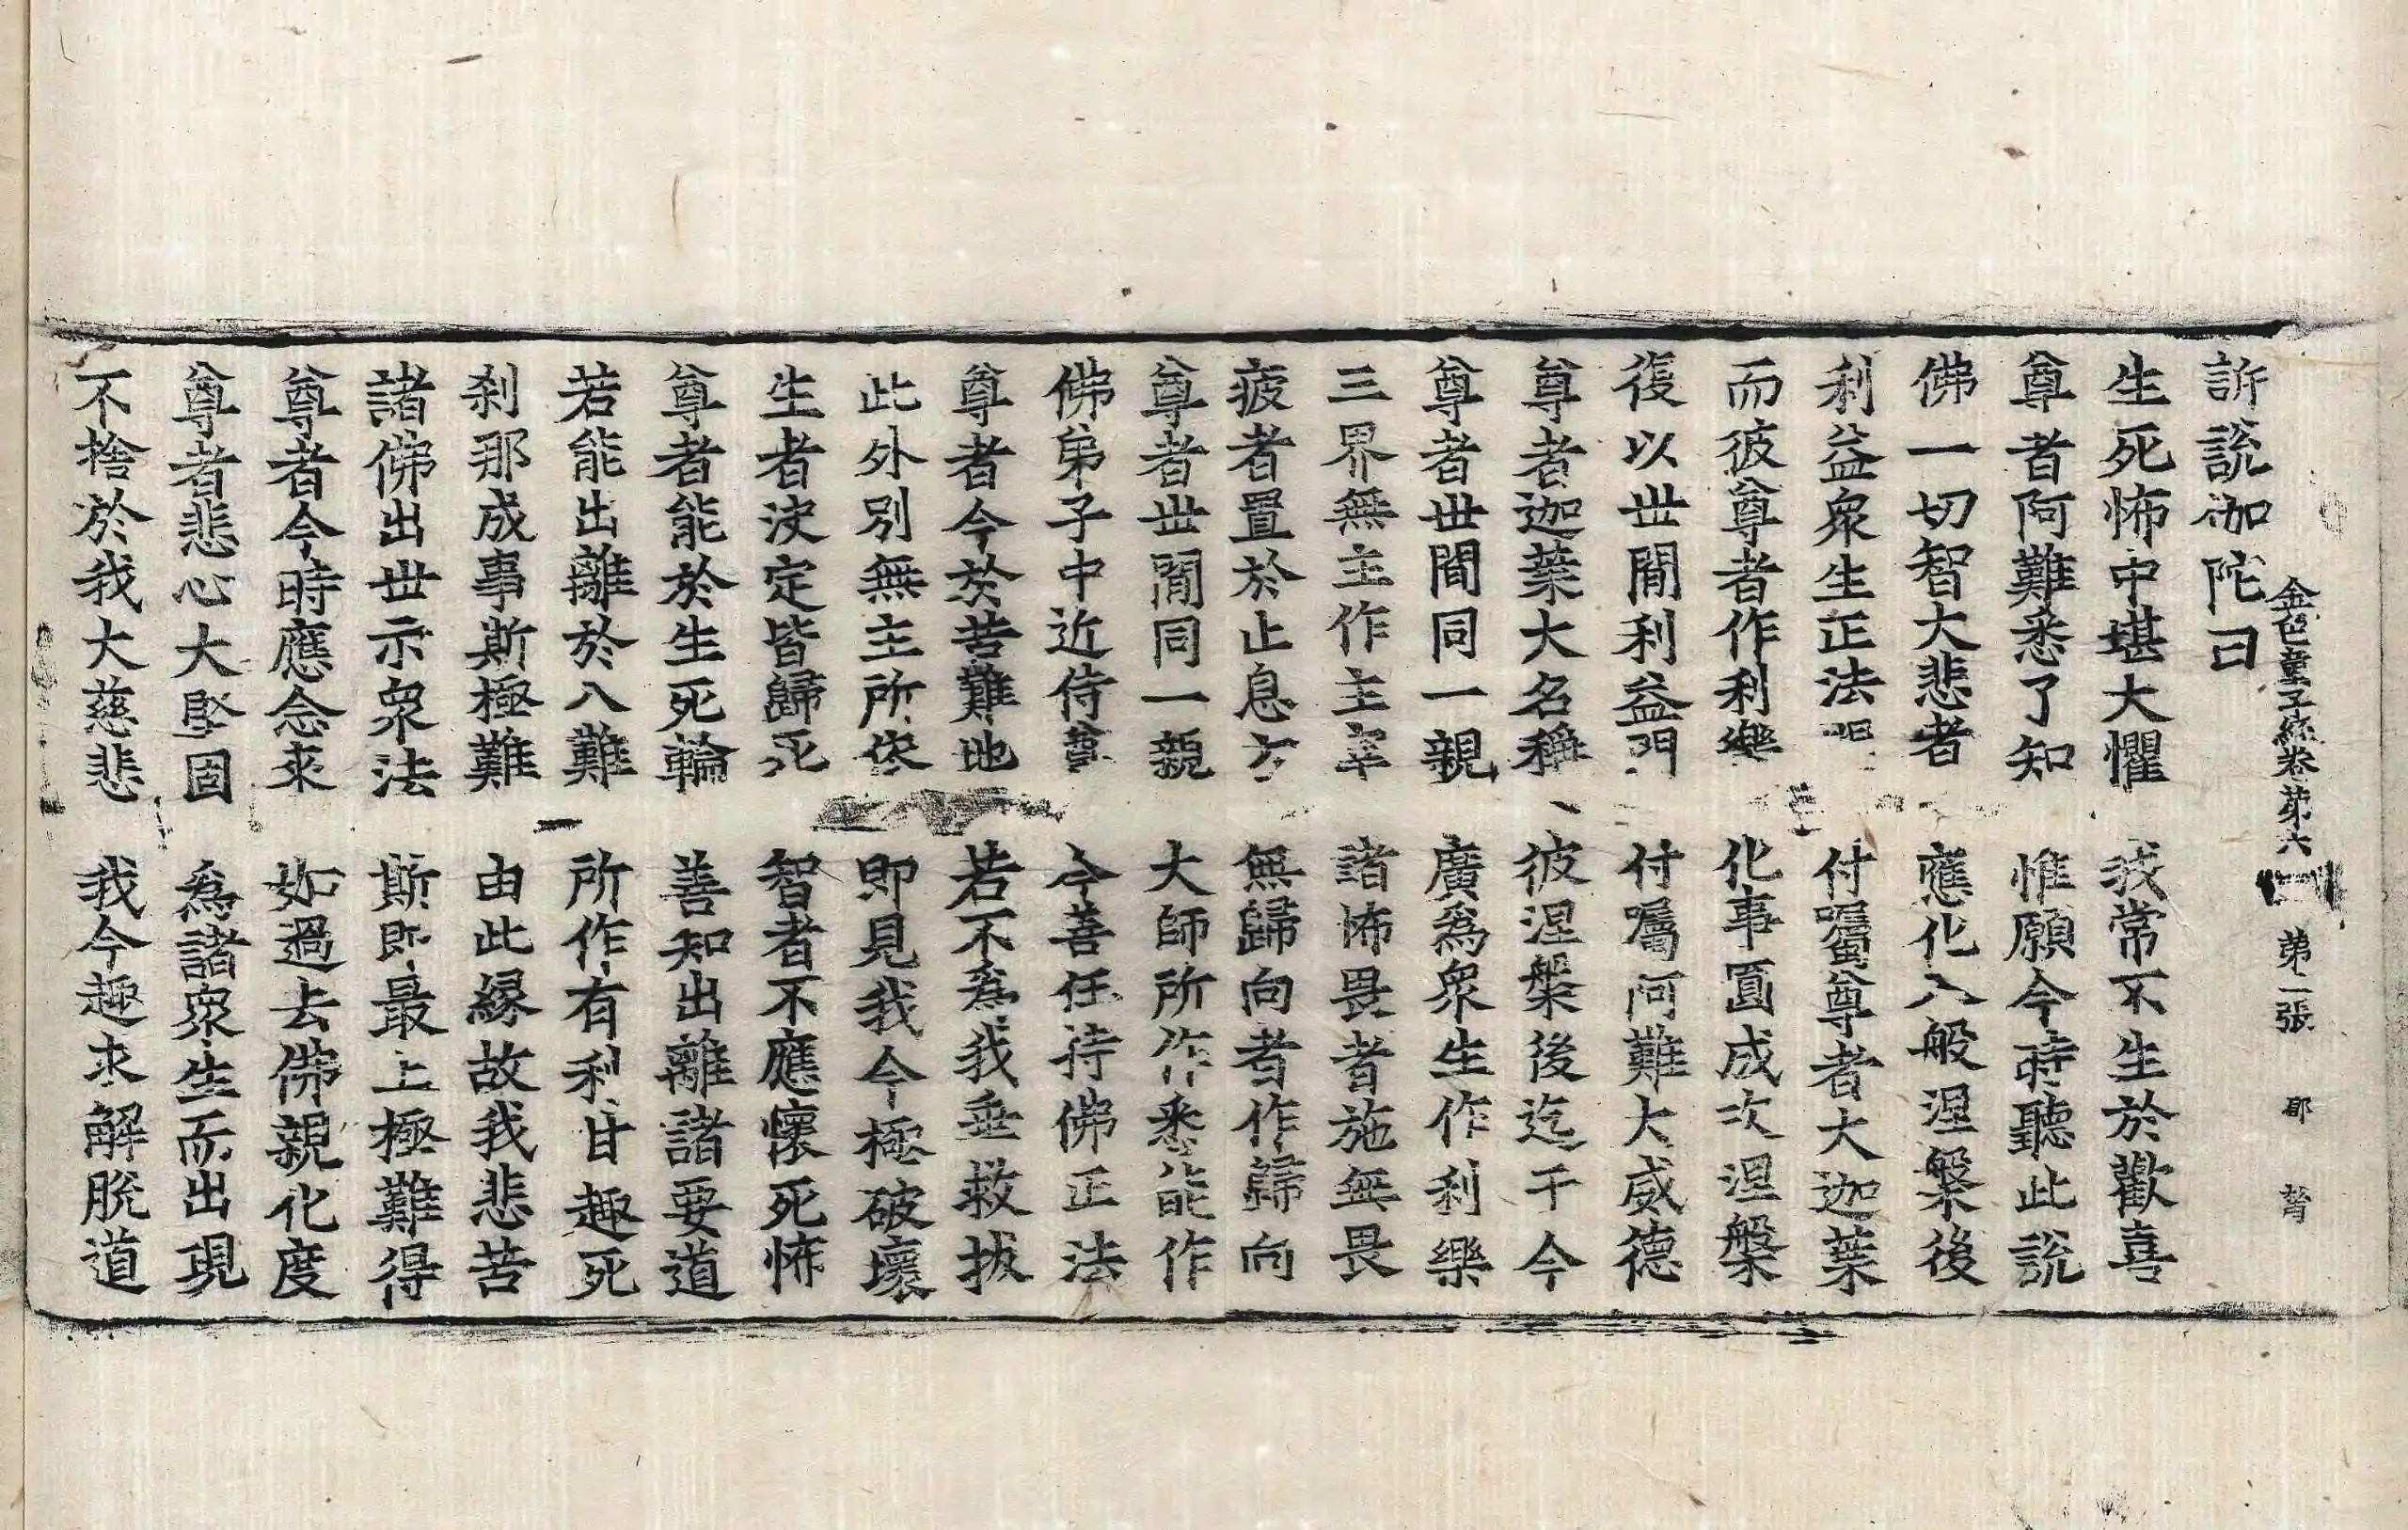 訴說伽陀曰
金色童子經卷第六 第二張 郡
生死怖中堪大懼 我常不生於歡喜
尊者阿難悉了知 惟願今時聽此說
佛一切智大悲者 應化入般涅槃後
利益衆生正法 付囑尊者大迦葉
而彼尊者作利樂 化事圓成次涅槃
復以世間利益門 付囑阿難大威德
尊者迦葉大名稱 彼涅槃後迄于今
尊者世間同一親 廣爲衆生作利樂
三界無主作主宰 諸怖畏者施無畏
疲者置於止息方 無歸向者作歸向
尊者世間同一親 大師所作悉能作
佛弟子中近侍尊 今善任持佛正法
尊者今於苦難地 若不爲我垂救拔
此外別無主所依 即見我今極破壞
生者決定皆歸死 智者不應懷死怖
尊者能於生死輪 善知出離諸要道
若能出離於八難 所作有利甘趣死
刹那成事斯極難 由此緣故我悲苦
諸佛出世示衆法 斯即最上極難得
尊者今時應念來 如過去佛親化度
尊者悲心大堅固 爲諸衆生而出現
不捨於我大慈悲 我今趣求解脫道